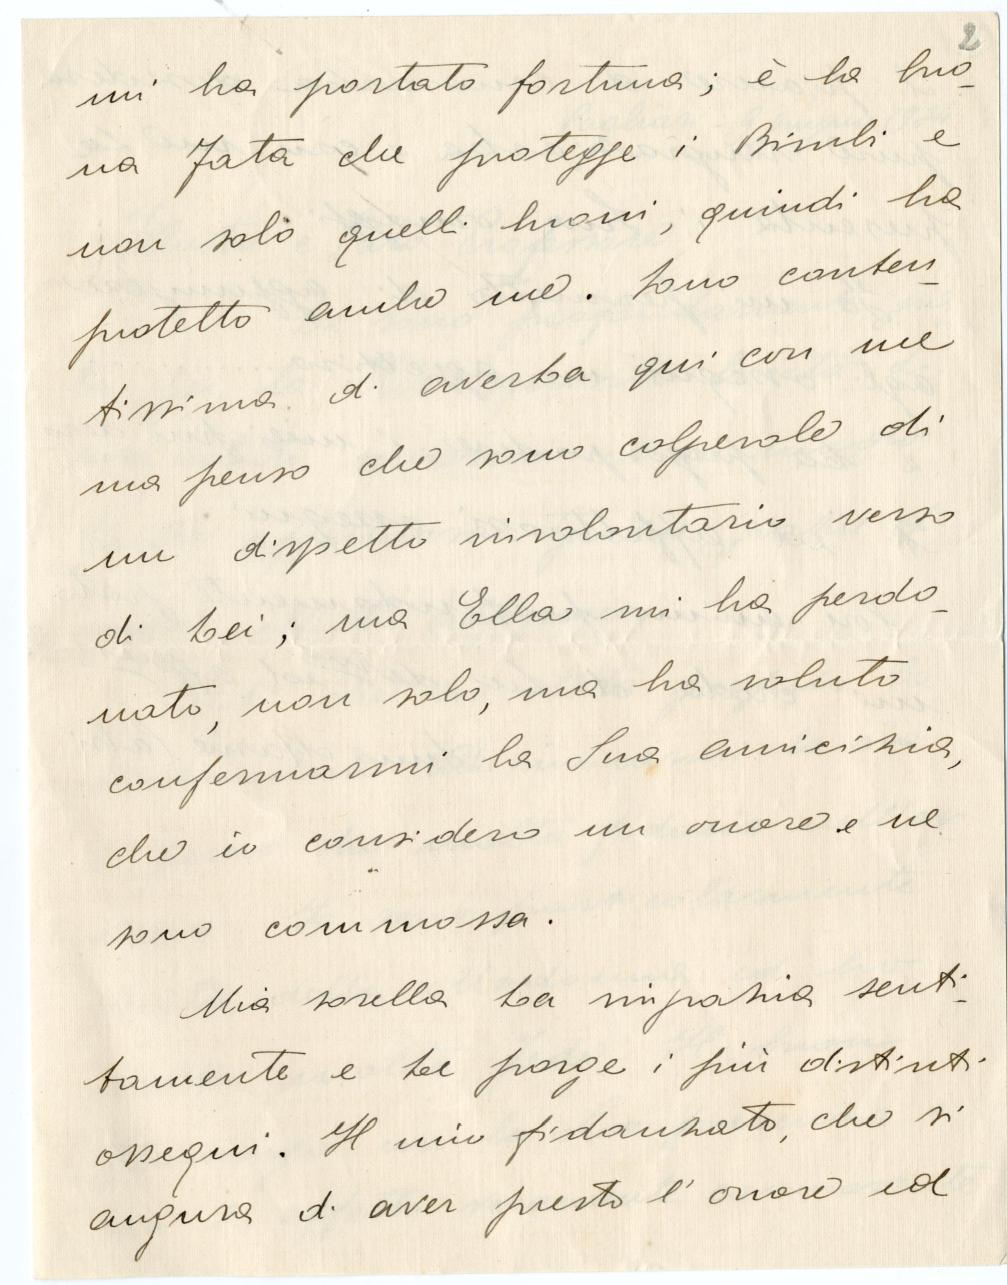 2
mi ha portato fortuna; è la buo-
na Fata che protegge i Bimbi e
non solo quelli buoni, quindi ha
protetto anche me. Sono conten-
tissima di averla qui con me
ma penso che sono colpevole di
un dispetto involontario verso
di Lei; ma Ella mi ha perdo-
nato, non solo, ma ha voluto
confermarmi la Sua amicizia,
che io considero un onore e ne
sono commossa.
Mia sorella La ringrazia senti-
tamente e Le porge i più distinti
ossequi. Il mio fidanzato, che si
augura di aver presto l'onore ed